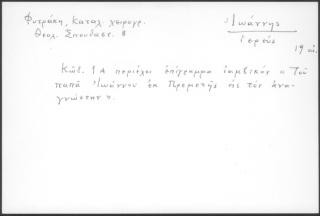 Φυτράκη, Καταλ. χειρογρ.
Θεολ. Σπουδαστ. 8
Ἰωάννης
ἱερεύς
19 αἰ.
Κῶδ. 1Α περιέχει ἐπίγραμμα ἰαμβικόν « Τοῦ
παπᾶ Ἰωάννου ἐκ Πρεμετῆς εἰς τόν ἀνα-
γνώστην ».